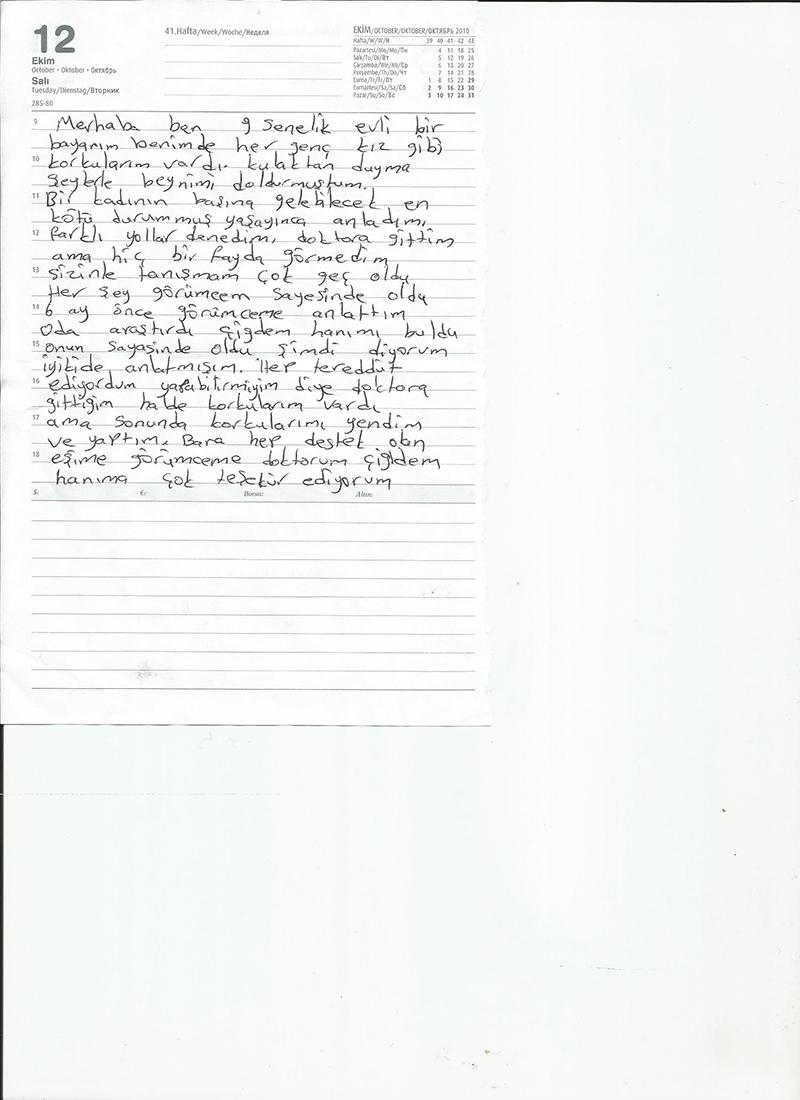 12
Ekim
October • Oktober • Октябрь
Salı
Tuesday/Dienstag/Вторник
285-80
41.Hafta/Week/Woche/Неделя
EKİM/OCTOBER/OKTOBER/ОКТЯБРЬ 2010
Hafta/W/W/H 39 40 41 42 43
Pazartesi/Mo/Mo/Пн 4 11 18 25
Salı/Tu/Di/Вт 5 12 19 26
Çarşamba/We/Mi/Ср 6 13 20 27
Perşembe/Th/Do/Чт 7 14 21 28
Cuma/Fr/Fr/Пт 1 8 15 22 29
Cumartesi/Sa/Sa/Сб 2 9 16 23 30
Pazar/Su/So/Вс 3 10 17 24 31
9 Merhaba ben 9 senelik evli bir
bayanım benimde her genç kız gibi
10 korkularım vardı. kulaktan duyma
şeylerle beynimi doldurmuştum.
11 Bir kadının başına gelebilecek en
kötü durummuş yaşayınca anladım,
12 farklı yollar denedim, doktora gittim
ama hiç bir fayda görmedim
13 sizinle tanışmam çok geç oldu
Her şey görümcem sayesinde oldu
14 6 ay önce görümceme anlattım
Oda araştırdı çigdem hanımı buldu
15 onun sayasinde oldu şimdi diyorum
iyikide anlatmışım. Hep tereddüt
16 ediyordum yapabilirmiyim diye doktora
gittiğim halde korkularım vardı
17 ama sonunda korkularımı yendim
ve yaptım. Bana hep destek olan
18 eşime görümceme doktorum çiğdem
hanıma çok teşekür ediyorum
$: €: Borsa: Altın: